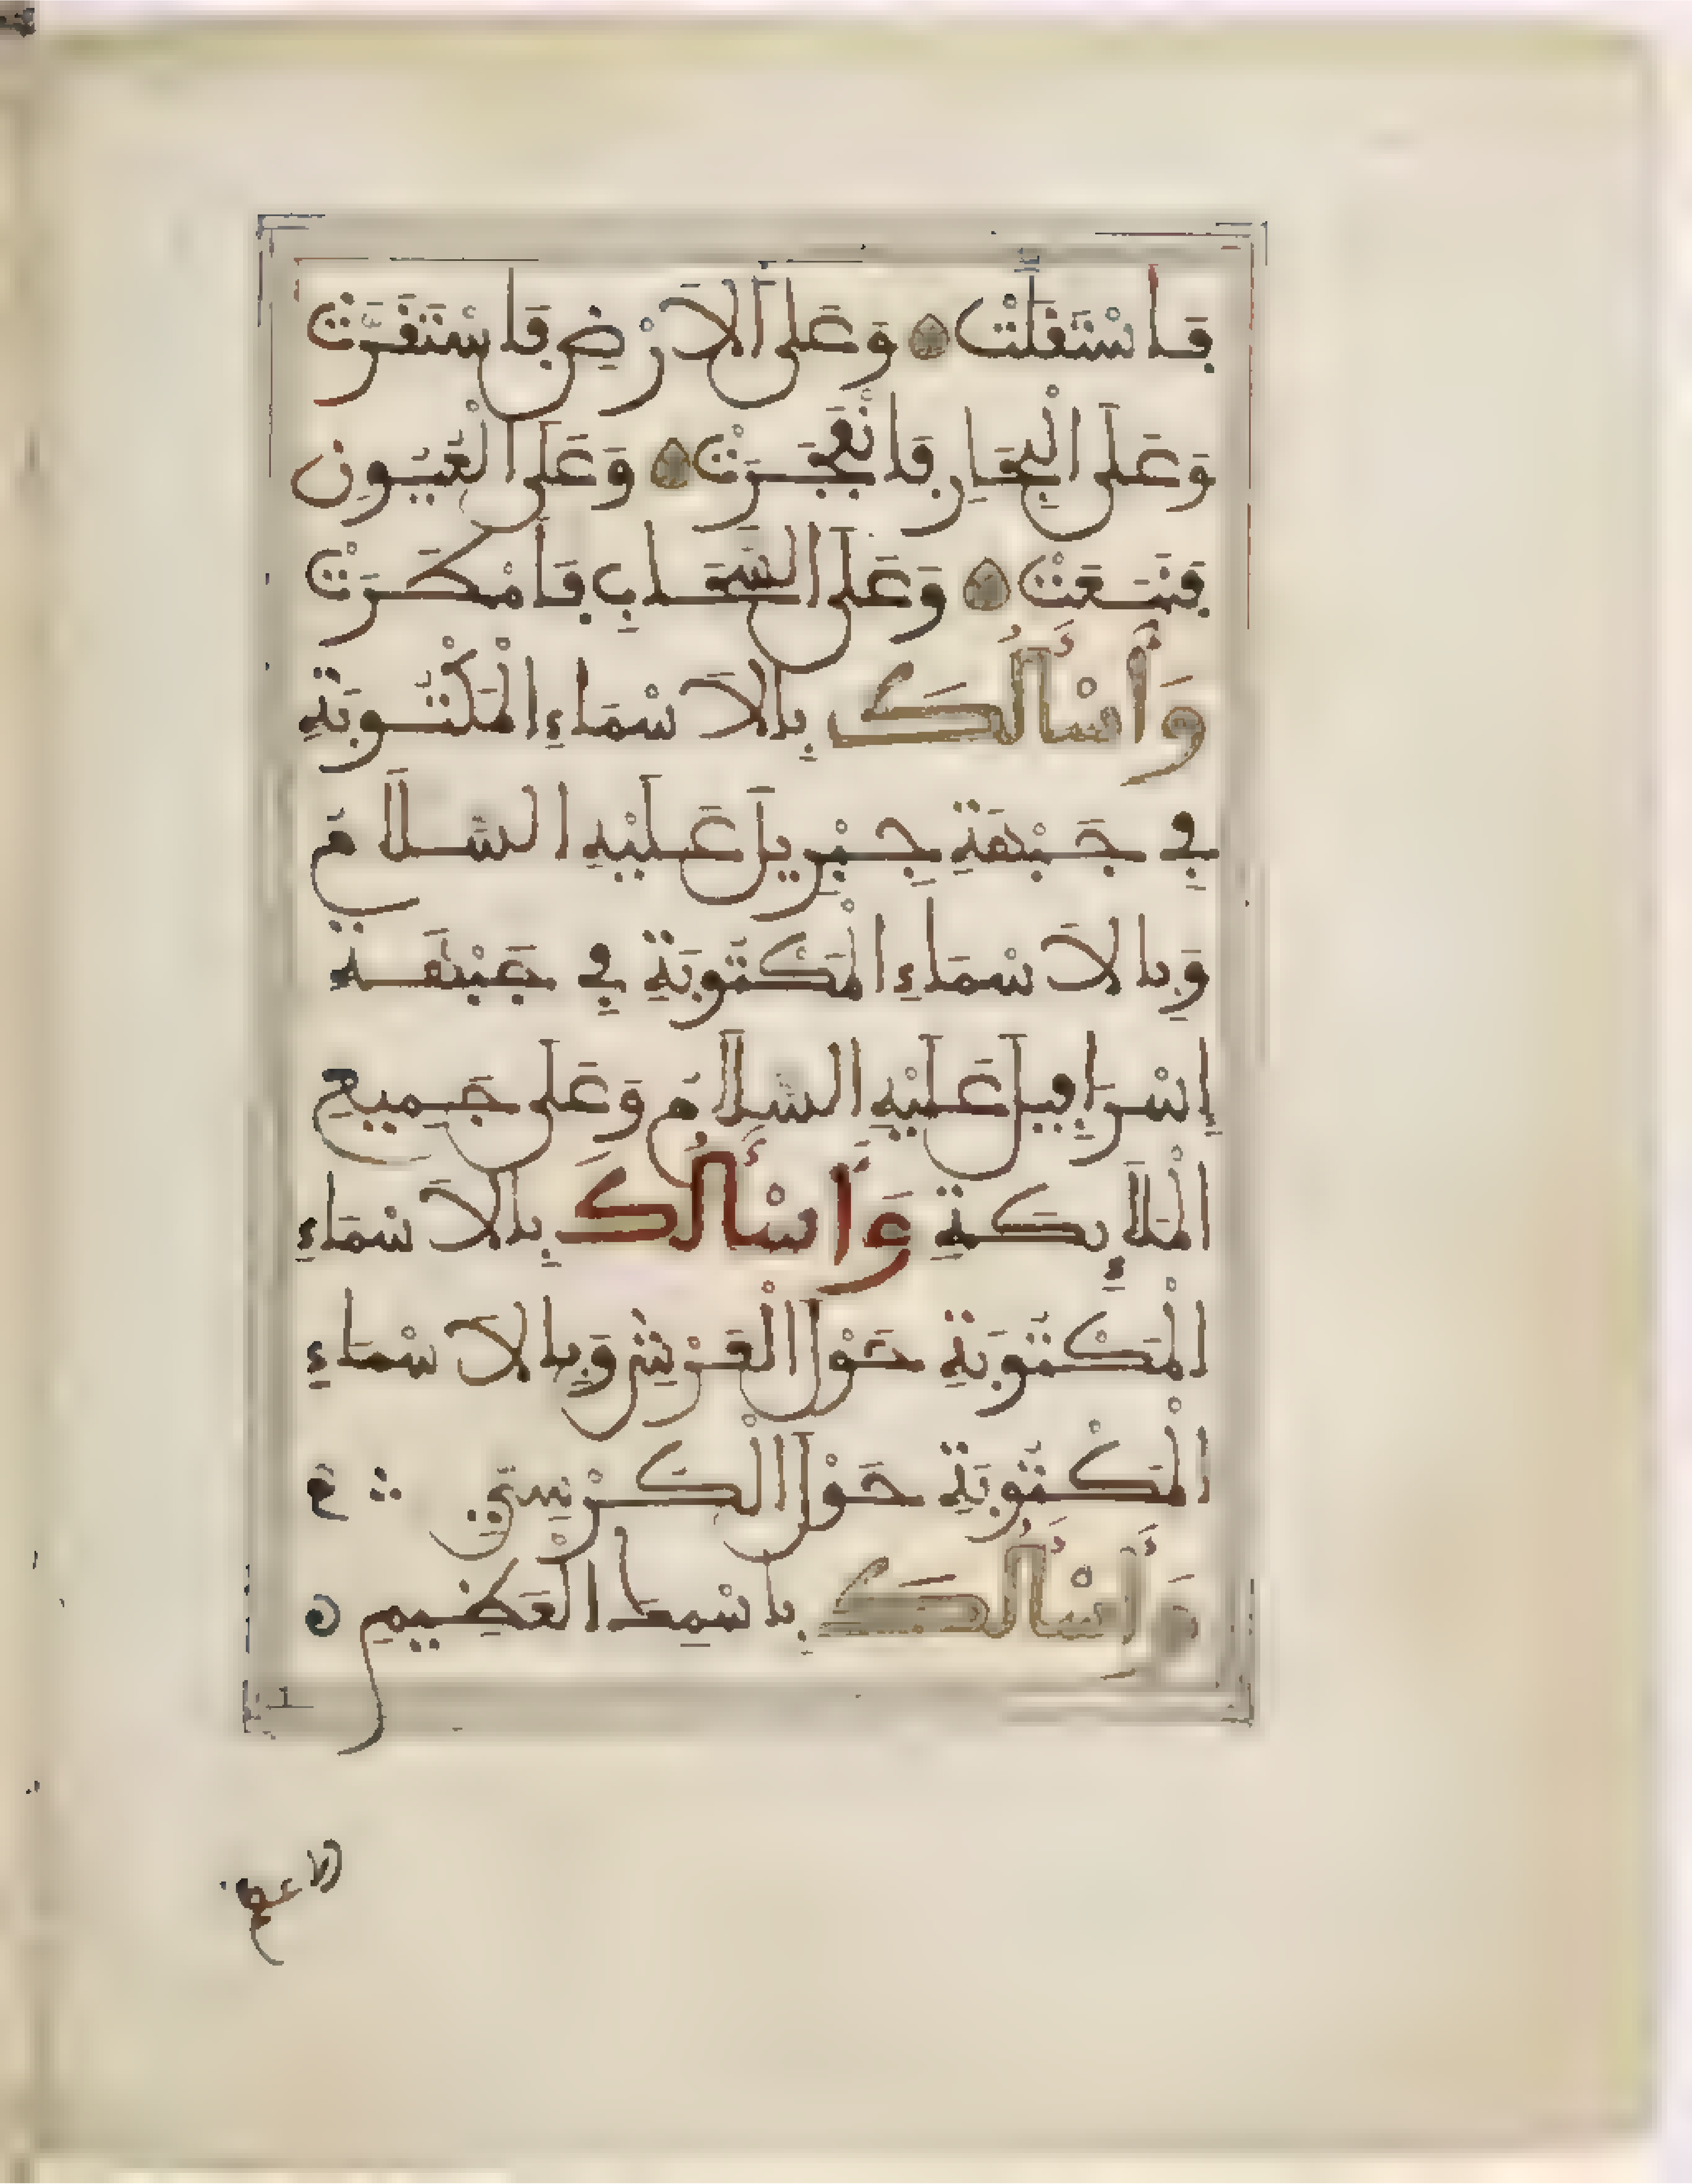 فَاسْتَقَلَّتْ وَعَلَى الَارْضِ فَاسْتَقَرَّتْ
وَعَلَى الْبِحَارِ فَانْفَجَرَتْ وَعَلَى الْعُيُونِ
فَنَبَعَتْ وَعَلَى السَّحَابِ فَأَمْطَرَتْ
وَأَسْأَلُكَ بِالَاسْمَاءِ الْمَكْتُوبَةِ
فِي جَبْهَةِ جِبْرِيلَ عَلَيْهِ السَّلَامُ
وَبِالَاسْمَاءِ الْمَكْتُوبَةِ فِي جَبْهَةِ
إِسْرَافِيلَ عَلَيْهِ السَّلَامُ وَعَلَى جَمِيعِ
الْمَلَائِكَةِ وَأَسْأَلُكَ بِالَاسْمَاءِ
الْمَكْتُوبَةِ حَوْلَ الْعَرْشِ وَبِالَاسْمَاءِ
الْمَكْتُوبَةِ حَوْلَ الْكُرْسِيِّ
وَأَسْأَلُكَ بِاسْمِكَ الْعَظِيمِ
الاعظم